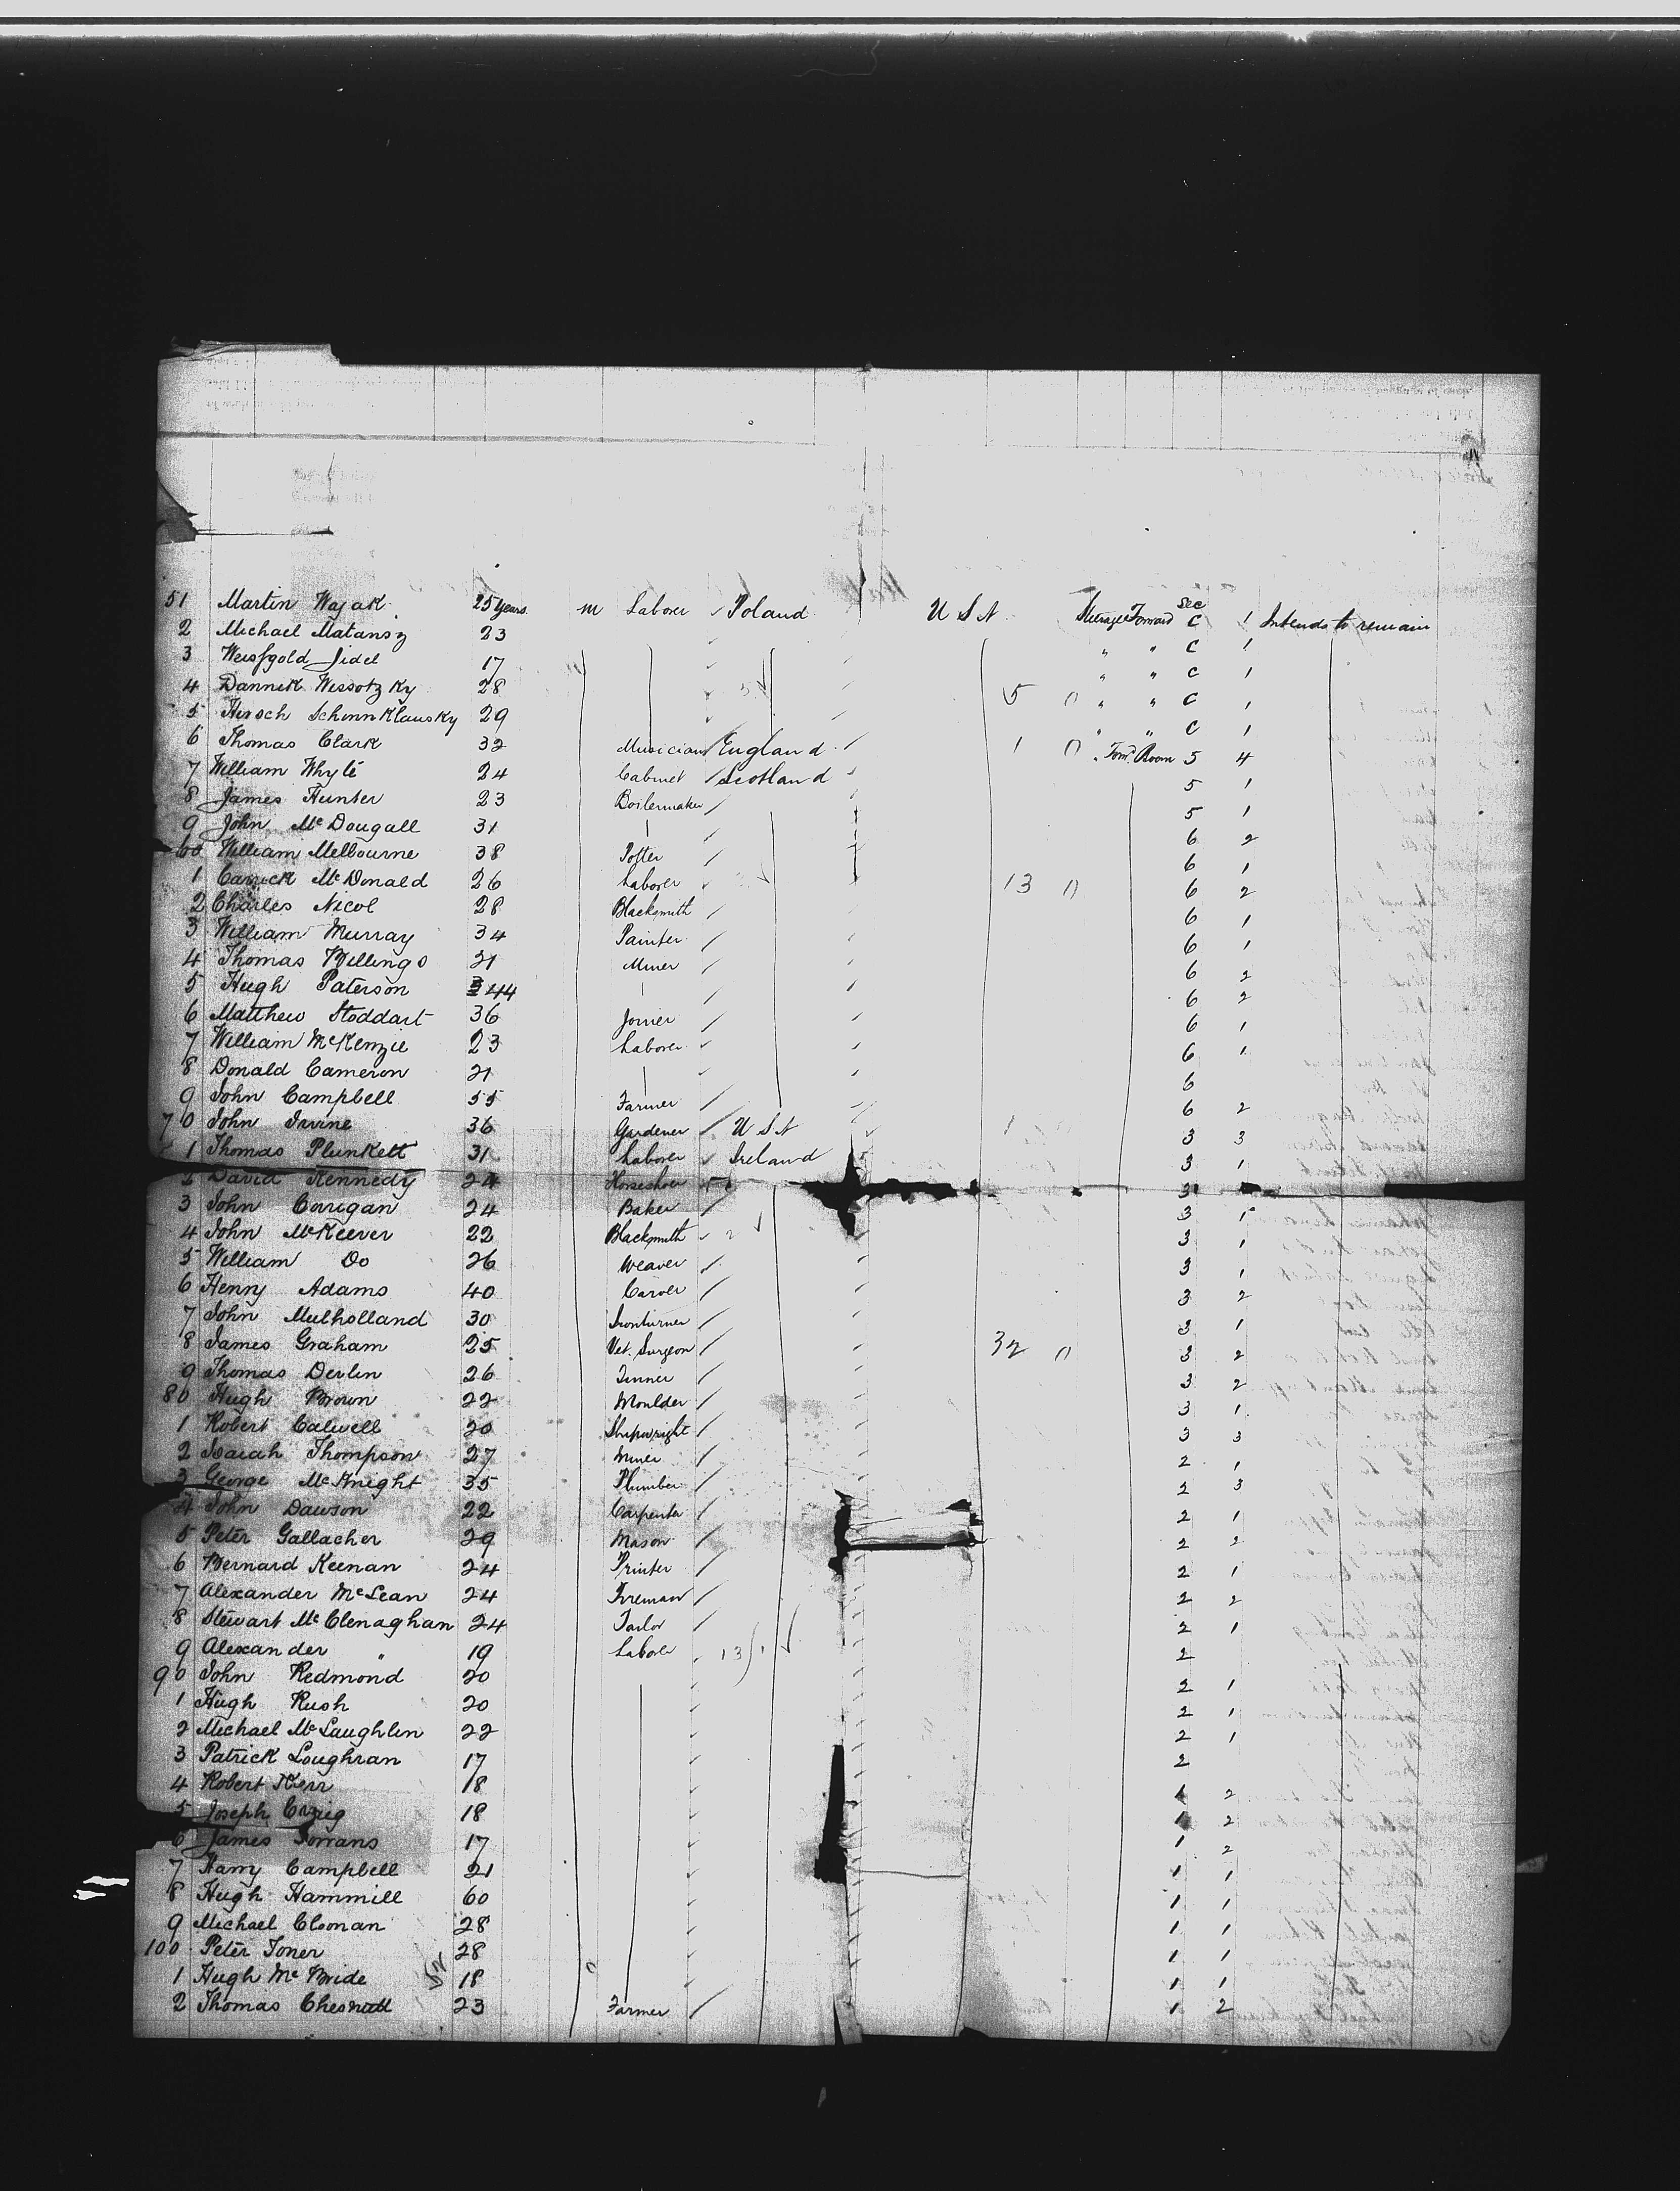 51 Martin Wajak 25 years m Laborer Poland U S A Steerage Forward Sec C 1 Intends to remain
2 Michael Matansz 23 " " C 1
3 Weisfgold Jidel 17 " " C 1
4 Dannik Wissotzky 28 5 " " C 1
5 Hersch Schonnklausky 29 " " C 1
6 Thomas Clark 32 Musician England 1 Forwd Room 5 4
7 William Whyte 24 Cabinet Scotland 5 1
8 James Hunter 23 Boilermaker 5 1
9 John McDougall 31 6 2
60 William Melbourne 38 Potter 6 1
1 Carrick McDonald 26 Laborer 13 6 2
2 Charles Nicol 28 Blacksmith 6 1
3 William Murray 34 Painter 6 1
4 Thomas Billings 21 Miner 6 2
5 Hugh Paterson 44 6 2
6 Matthew Stoddart 36 Joiner 6 1
7 William McKenzie 23 Laborer 6 1
8 Donald Cameron 21 6
9 John Campbell 55 Farmer 6 2
70 John Irvine 36 Gardener U S A 1 3 3
1 Thomas Plunkett 31 Laborer Ireland 3 1
2 David Kennedy 24 Horseshoer 3
3 John Corrigan 24 Baker 3 1
4 John McKeever 22 Blacksmith 2 3 1
5 William Do 26 Weaver 3 1
6 Henry Adams 40 Carver 3 2
7 John Mulholland 30 Ironturner 3 1
8 James Graham 25 Vet. Surgeon 32 3 2
9 Thomas Devlin 26 Tinner 3 2
80 Hugh Brown 22 Moulder 3 1
1 Robert Calwell 20 Shipwright 3 3
2 Isaiah Thompson 27 Miner 2 1
3 George McKnight 35 Plumber 2 3
4 John Dawson 22 Carpenter 2 1
5 Peter Gallacher 29 Mason 2 2
6 Bernard Keenan 24 Printer 2 1
7 Alexander McLean 24 Fireman 2 2
8 Stewart McClenaghan 24 Tailor 2 1
9 Alexander " 19 Laborer 13 2
90 John Redmond 20 2 1
1 Hugh Rush 20 2 1
2 Michael McLaughlin 22 2 1
3 Patrick Loughran 17 2
4 Robert Kerr 18 1 2
5 Joseph Craig 18 1 2
6 James Torrans 17 1 2
7 Harry Campbell 21 1 1
8 Hugh Hammill 60 1 1
9 Michael Cloonan 28 1 1
100 Peter Toner 28 1 1
1 Hugh McBride 18 1 1
2 Thomas Chesnutt 23 Farmer 1 2